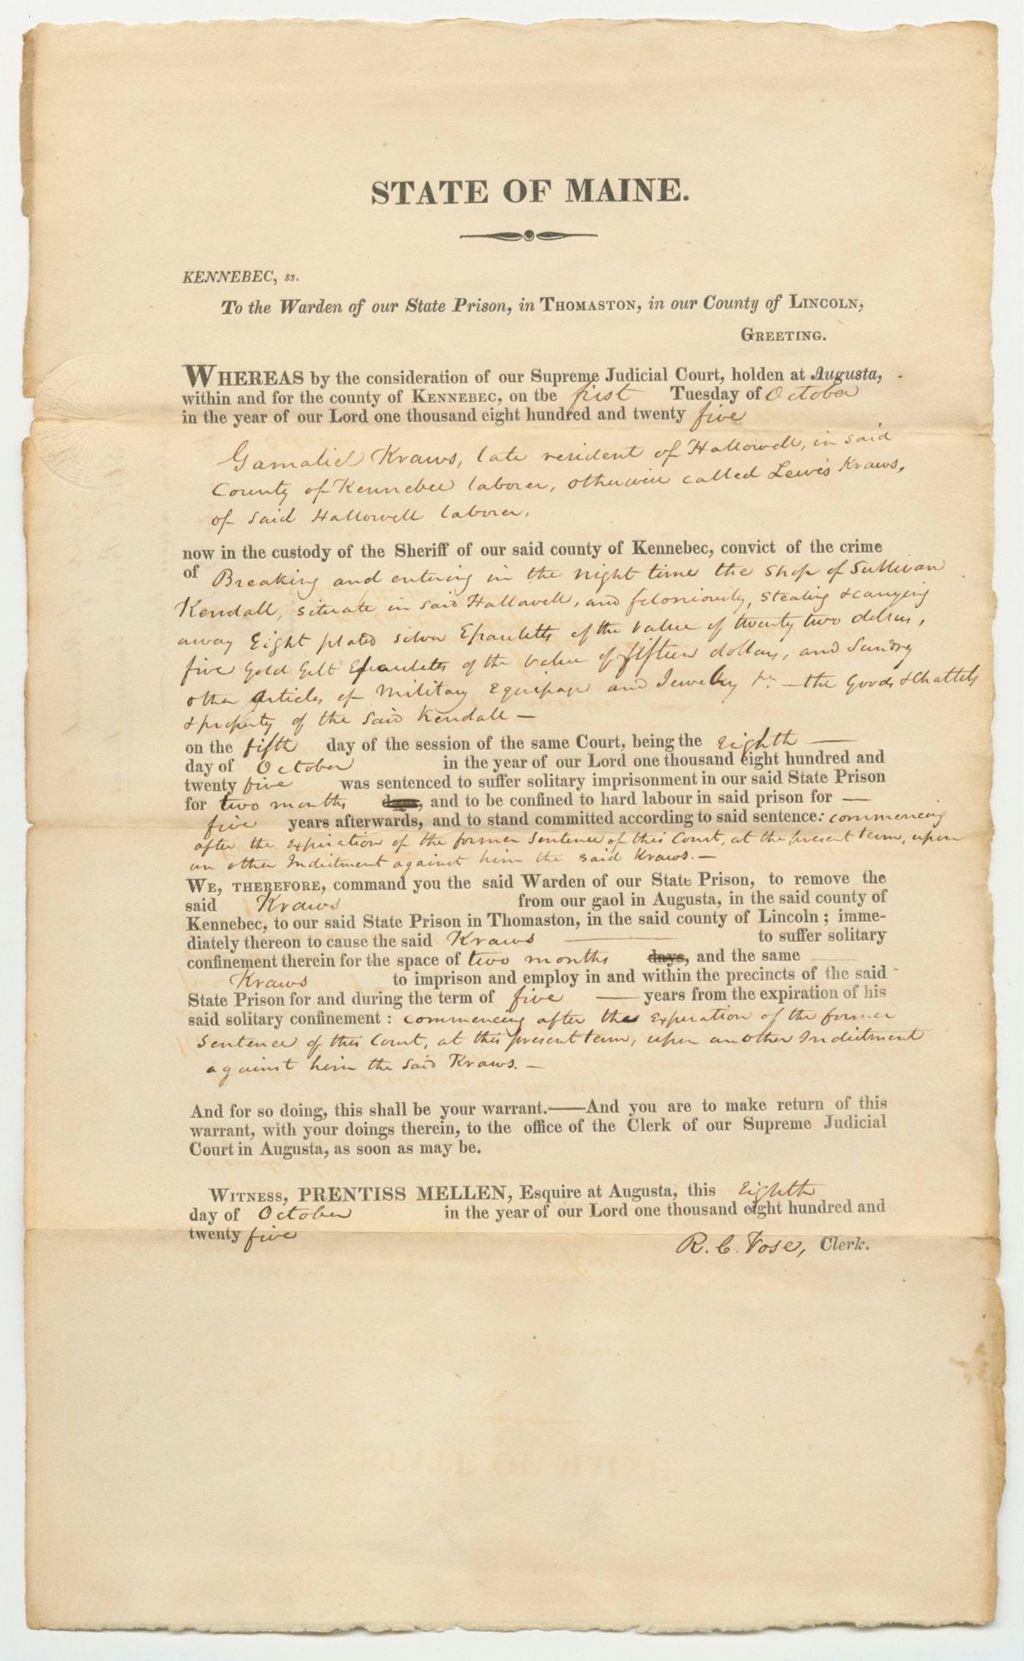 STATE OF MAINE.
KENNEBEC, ss.
To the Warden of our State Prison, in THOMASTON, in our County of LINCOLN,
GREETING.
WHEREAS by the consideration of our Supreme Judicial Court, holden at Augusta,
within and for the county of KENNEBEC, on the first Tuesday of October
in the year of our Lord one thousand eight hundred and twenty five
Gamaliel Kraws, late resident of Hallowell, in said
County of Kennebec laborer, otherwise called Lewis Kraws,
of said Hallowell laborer,
now in the custody of the Sheriff of our said county of Kennebec, convict of the crime
of Breaking and entering in the night time the Shop of Sullivan
Kendall, situate in said Hallowell, and feloniously, stealing & carrying
away Eight plated silver Epauletts of the value of twenty two dollars,
five Gold Gilt Epauletts of the value of fifteen dollars, and Sundry
other articles of Military Equipage and Jewelry &c - the Goods & Chattels
& property of the said Kendall -
on the fifth day of the session of the same Court, being the Eighth
day of October in the year of our Lord one thousand eight hundred and
twenty five was sentenced to suffer solitary imprisonment in our said State Prison
for two months days, and to be confined to hard labour in said prison for
five years afterwards, and to stand committed according to said sentence: commencing
after the expiration of the former Sentence of this Court, at the present term, upon
an other Indictment against him the said Kraws. -
WE, THEREFORE, command you the said Warden of our State Prison, to remove the
said Kraws from our gaol in Augusta, in the said county of
Kennebec, to our said State Prison in Thomaston, in the said county of Lincoln; imme-
diately thereon to cause the said Kraws to suffer solitary
confinement therein for the space of two months days, and the same
Kraws to imprison and employ in and within the precincts of the said
State Prison for and during the term of five years from the expiration of his
said solitary confinement: commencing after the expiration of the former
Sentence of this Court, at this present term, upon another Indictment
against him the said Kraws. -
And for so doing, this shall be your warrant.——And you are to make return of this
warrant, with your doings therein, to the office of the Clerk of our Supreme Judicial
Court in Augusta, as soon as may be.
WITNESS, PRENTISS MELLEN, Esquire at Augusta, this Eighth
day of October in the year of our Lord one thousand eight hundred and
twenty five
R. C. Vose, Clerk.